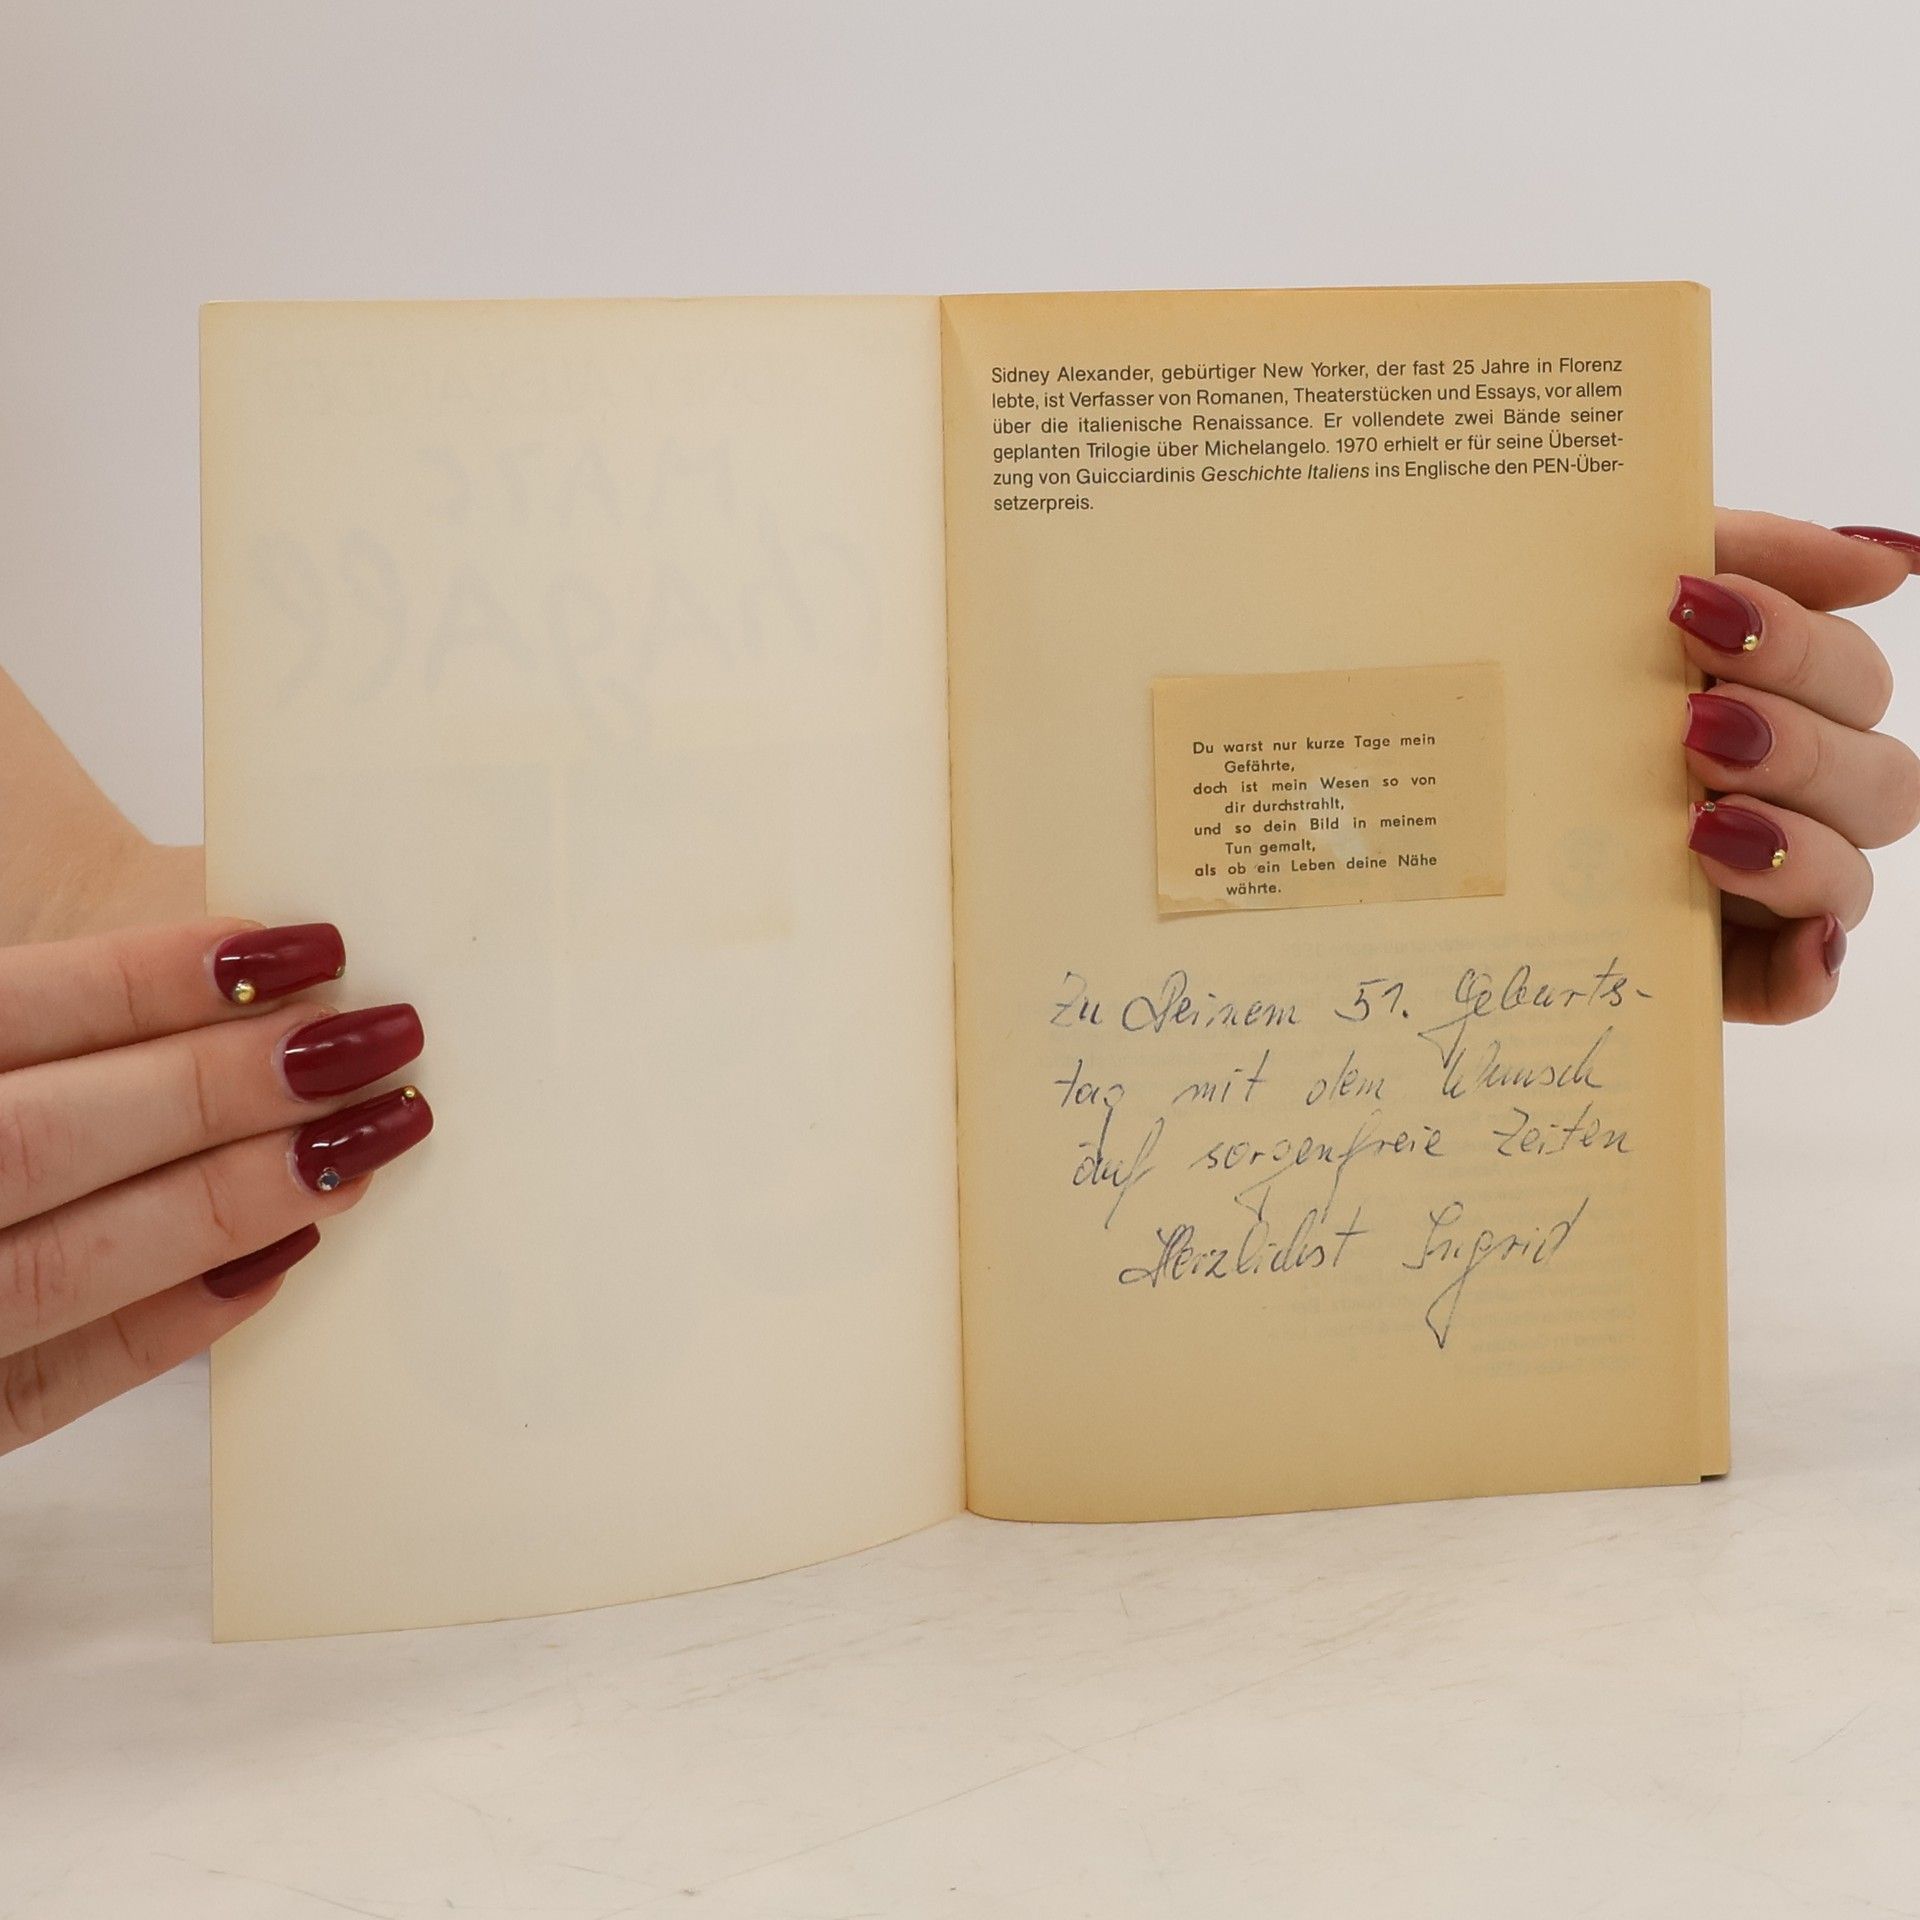 Sidney Alexander, gebürtiger New Yorker, der fast 25 Jahre in Florenz
lebte, ist Verfasser von Romanen, Theaterstücken und Essays, vor allem
über die italienische Renaissance. Er vollendete zwei Bände seiner
geplanten Trilogie über Michelangelo. 1970 erhielt er für seine Überset-
zung von Guicciardinis Geschichte Italiens ins Englische den PEN-Über-
setzerpreis.
Du warst nur kurze Tage mein
Gefährte,
doch ist mein Wesen so von
dir durchstrahlt,
und so dein Bild in meinem
Tun gemalt,
als ob ein Leben deine Nähe
währte.
Zu Deinem 51. Geburts-
tag mit dem Wunsch
auf sorgenfreie Zeiten
Herzlichst Ingrid